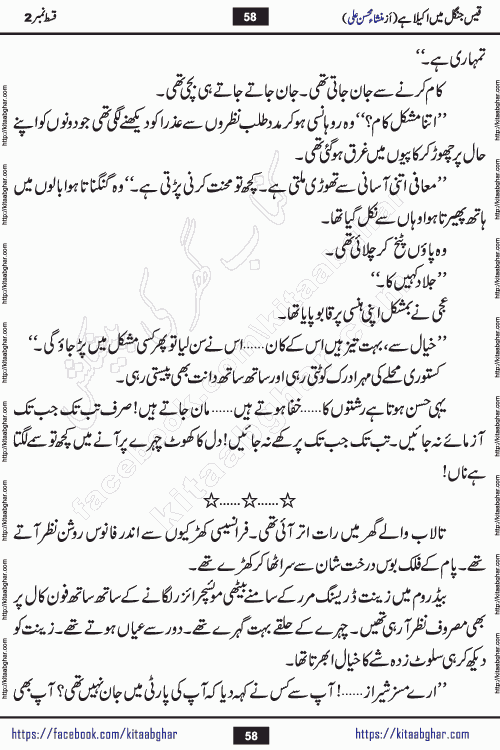 قیس جنگل میں اکیلا ہے (از منشاء محسن علی) 58 قسط نمبر 2
تمہاری ہے۔‘‘
کام کرنے سے جان جاتی تھی۔ جان جاتے جاتے ہی بچی تھی۔
’’اتنا مشکل کام؟‘‘ وہ روہانسی ہو کر مدد طلب نظروں سے عذرا کو دیکھنے لگی تھی جو دونوں کو اپنے
حال پر چھوڑ کر کاپیوں میں غرق ہو گئی تھی۔
’’معافی اتنی آسانی سے تھوڑی ملتی ہے۔ کچھ تو محنت کرنی پڑتی ہے۔‘‘ وہ گنگناتا ہوا بالوں میں
ہاتھ پھیرتا ہوا وہاں سے نکل گیا تھا۔
وہ پاؤں پٹخ کر چلائی تھی۔
’’جلاد کہیں کا۔‘‘
عجی نے بمشکل اپنی ہنسی پر قابو پایا تھا۔
’’خیال سے، بہت تیز ہیں اس کے کان......اس نے سن لیا تو پھر کسی مشکل میں پڑ جاؤ گی۔‘‘
کستوری محلے کی مہرادرک کوٹتی رہی اور ساتھ ساتھ دانت بھی پیستی رہی۔
یہی حسن ہوتا ہے رشتوں کا......خفا ہوتے ہیں...... مان جاتے ہیں! صرف تب تک جب تک
آزمائے نہ جائیں۔ تب تک جب تک پرکھے نہ جائیں! دل کا کھوٹ چہرے پر آنے میں کچھ تو سمے لگتا
ہے ناں!
☆......☆......☆
تالاب والے گھر میں رات اتر آئی تھی۔ فرانسیسی کھڑکیوں سے اندر فانوس روشن نظر آتے
تھے۔ پام کے فلک بوس درخت شان سے سر اٹھا کر کھڑے تھے۔
بیڈ روم میں زینت ڈریسنگ مرر کے سامنے بیٹھی موئسچرائزر لگانے کے ساتھ ساتھ فون کال پر
بھی مصروف نظر آ رہی تھیں۔ چہرے کے حلقے بہت گہرے تھے۔ دور سے عیاں ہوتے تھے۔ زینت کو
دیکھ کر ہی سلوٹ زدہ شے کا خیال ابھرتا تھا۔
’’ارے مسز شیراز......! آپ سے کس نے کہہ دیا کہ آپ کی پارٹی میں جان نہیں تھی؟ آپ بھی
https://facebook.com/kitaabghar 58 https://kitaabghar.com
http://kitaabghar.com
کتاب گھر کی پیشکش
kitaabghar.com
facebook.com/kitaabghar